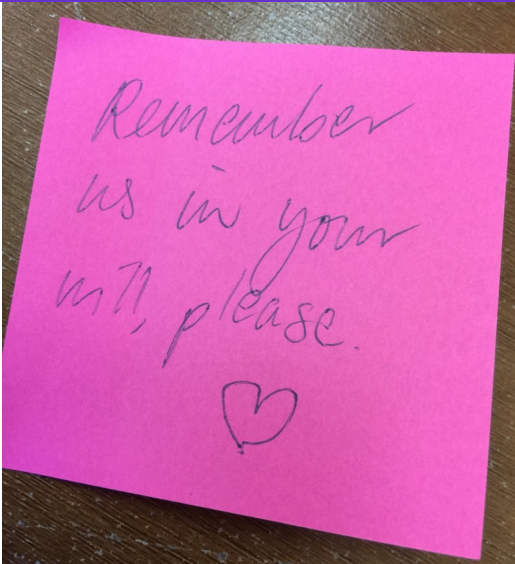 Remember
us in your
will, please.